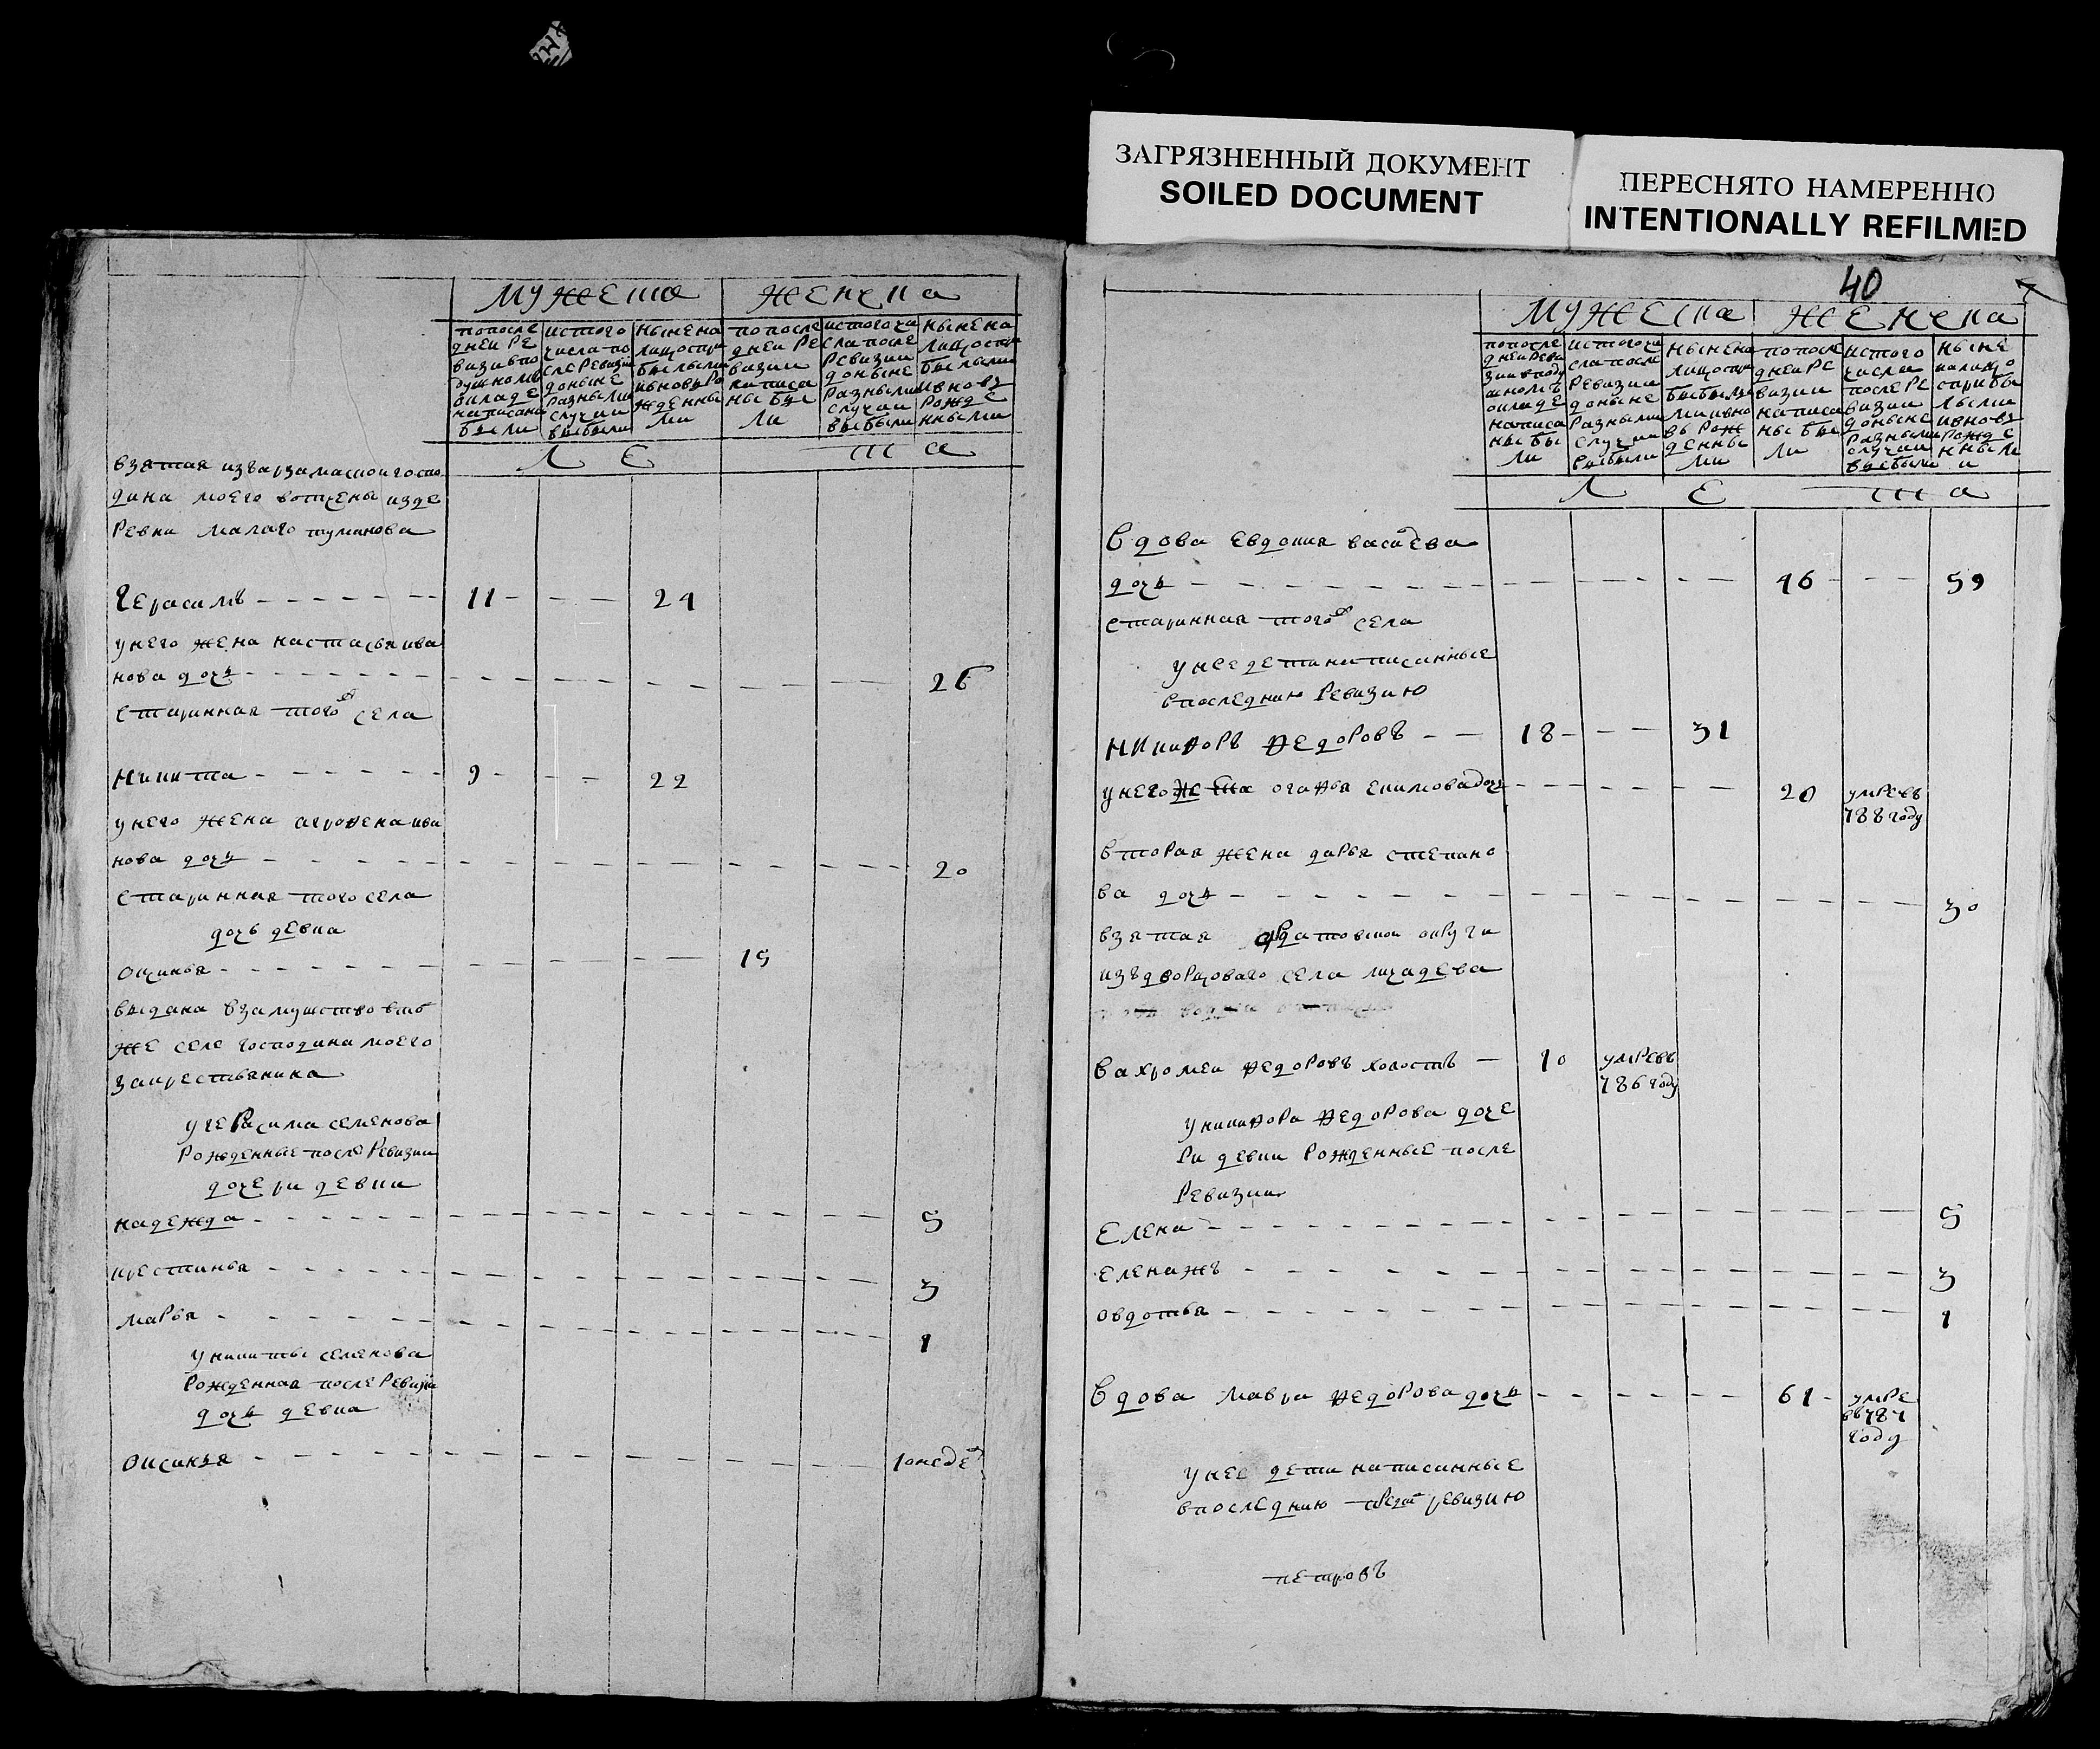 ЗАГРЯЗНЕННЫЙ ДОКУМЕНТ
SOILED DOCUMENT
ПЕРЕСНЯТО НАМЕРЕННО
INTENTIONALLY REFILMED
мужеска
женска
попосле
дней ре
визии впо
душномъ
окладе
написано
были
истого
числа по
сле ревизи
доныне
разными
случаи
выбыли
ныне на
лицо спри
былыми
ивновь ро
жденны
ми
попосле
дней ре
визии
написа
ны бы
ли
истого чи
сла после
ревизии
доныне
разными
случаи
выбыли
ныне на
лицо спри
былыми
ивновь
рожде
нными
ле
та
взятая изъ арзамаской госпо
дина моего вотчены изде
ревни малаго туманова
Герасимъ 11 24
унего жена настасья ива
нова дочь 26
старинная того ж села
никита 9 22
унего жена агрофена ива
нова дочь 20
старинная того села
дочь девка
оксинья 15
выдана взамужство втом
же селе господина моего
закрестьянина
у герасима семенова
рожденные после ревизии
дочери девки
надежда 5
крестинья 3
марья 1
у никиты семенова
рожденная после ревизи
дочь девка
оксинья 10 недел
40
мужеска
женска
попосле
дней реви
зии вподу
шномъ
окладе
написа
ны бы
ли
истого чи
сла после
ревизии
доныне
разными
случаи
выбыли
ныне на
лицо спри
былы
ми ивно
вь рож
денны
ми
попосле
дней ре
визии
написа
ны бы
ли
истого
числа
после ре
визии
доныне
разными
случаи
выбыли
ныне
налицо
сприбы
лыми
ивновь
рожде
нными
ле
та
вдова евдокия васильева
дочь 46 59
старинная того ж села
унее дети написанные
впоследнию ревизию
никифоръ федоровъ 18 31
унего жена огафья екимова дочь 20 умре въ
788 году
вторая жена дарья степано
ва дочь 30
взятая ардатовской округи
изъ дворцоваго села личадева
вахромеи федоровъ холостъ 10 умре въ
786 году
у никифора федорова доче
ри девки рожденные после
ревизии
елена 5
елена жъ 3
овдотья 1
вдова мавра федорова дочь 61 умре
въ 784
году
унее дети написанные
впоследнию ревизию
петровъ